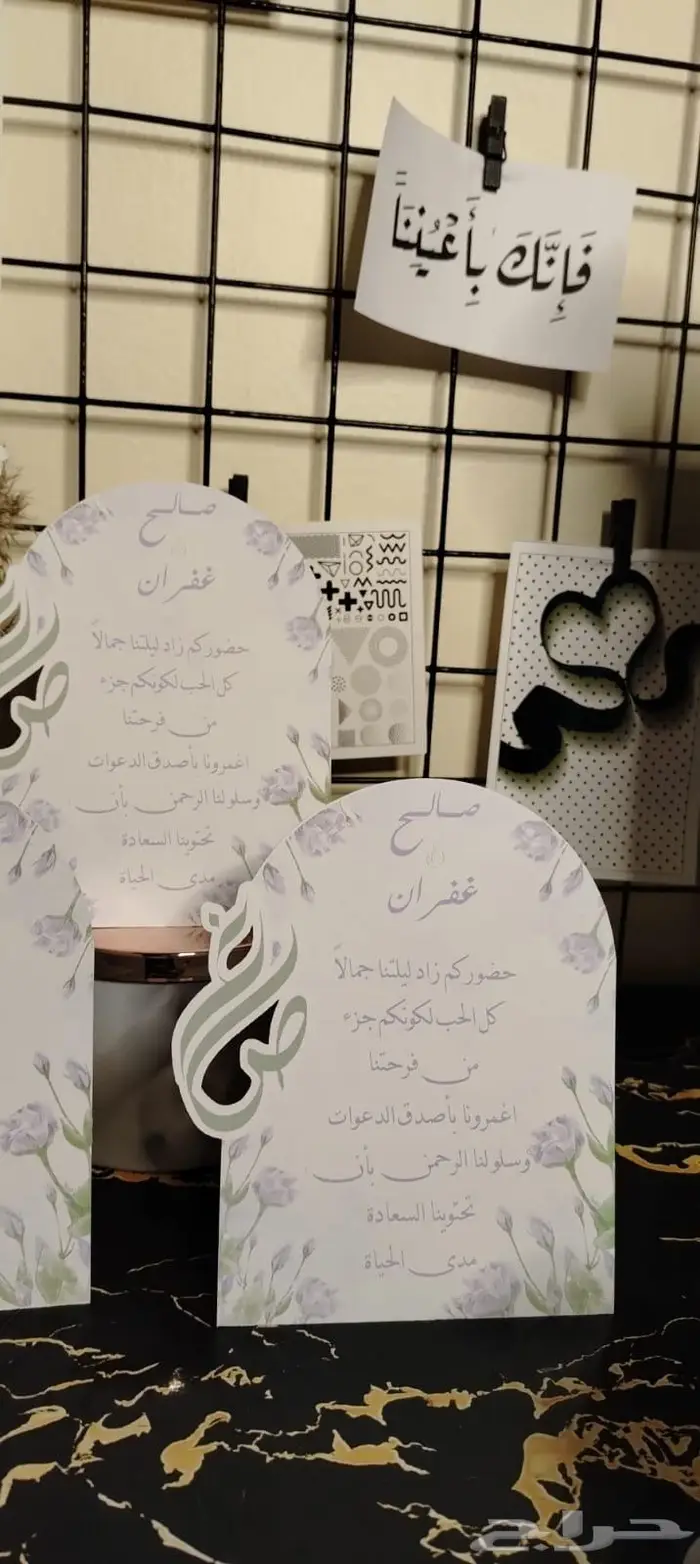 فَإِنَّكَ بِأَعْيُنِنَا
صالح
غفران
حضوركم زاد ليلتنا جمالاً
كل الحب لكونكم جزء
من فرحتنا
اغمرونا بأصدق الدعوات
وسلولنا الرحمن بأن
تحتوينا السعادة
مدى الحياة
صالح
&
غفران
حضوركم زاد ليلتنا جمالاً
كل الحب لكونكم جزء
من فرحتنا
اغمرونا بأصدق الدعوات
وسلولنا الرحمن بأن
تحتوينا السعادة
مدى الحياة
حراج